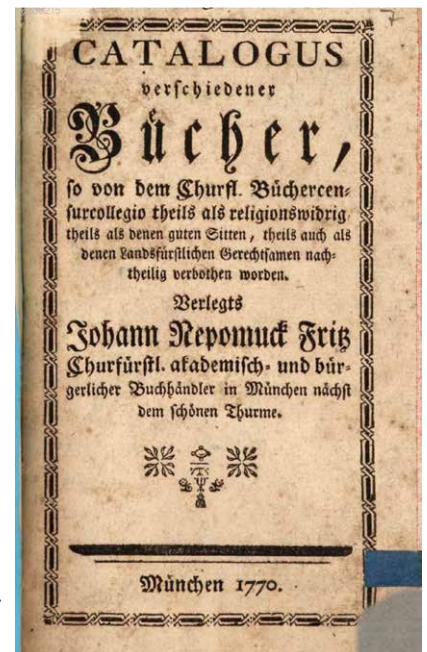 7
CATALOGUS
verschiedener
Bücher,
so von dem Churfl. Büchercen-
surcollegio theils als religionswidrig
theils als denen guten Sitten, theils auch als
denen Landsfürstlichen Gerechtsamen nach-
theilig verbothen worden.
Verlegts
Johann Nepomuck Fritz
Churfürstl. akademisch- und bür-
gerlicher Buchhändler in München nächst
dem schönen Thurme.
München 1770.